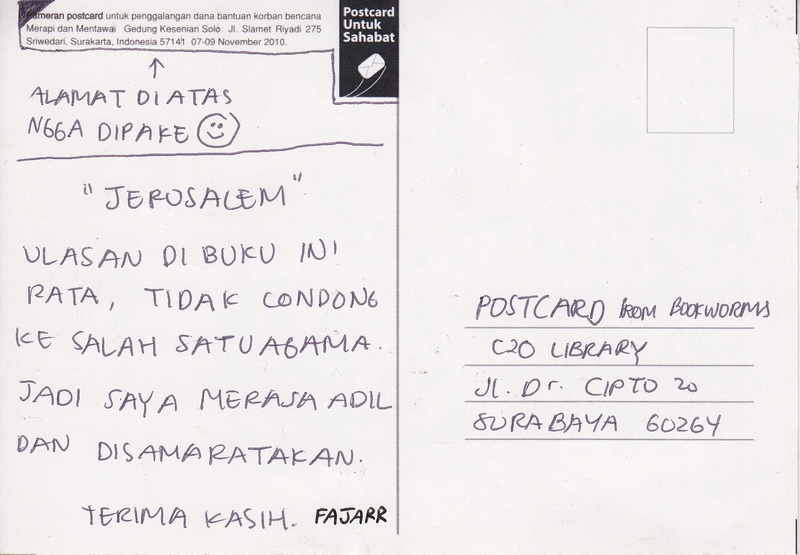 Pameran postcard untuk penggalangan dana bantuan korban bencana
Merapi dan Mentawai Gedung Kesenian Solo Jl. Slamet Riyadi 275
Sriwedari, Surakarta, Indonesia 57141 07-09 November 2010.
Postcard
Untuk
Sahabat
ALAMAT DI ATAS
NGGA DIPAKE
"JERUSALEM"
ULASAN DI BUKU INI
RATA, TIDAK CONDONG
KE SALAH SATU AGAMA.
JADI SAYA MERASA ADIL
DAN DISAMARATAKAN.
TERIMA KASIH. FAJARR
POSTCARD FROM BOOKWORMS
C2O LIBRARY
Jl. Dr. CIPTO 20
SURABAYA 60264